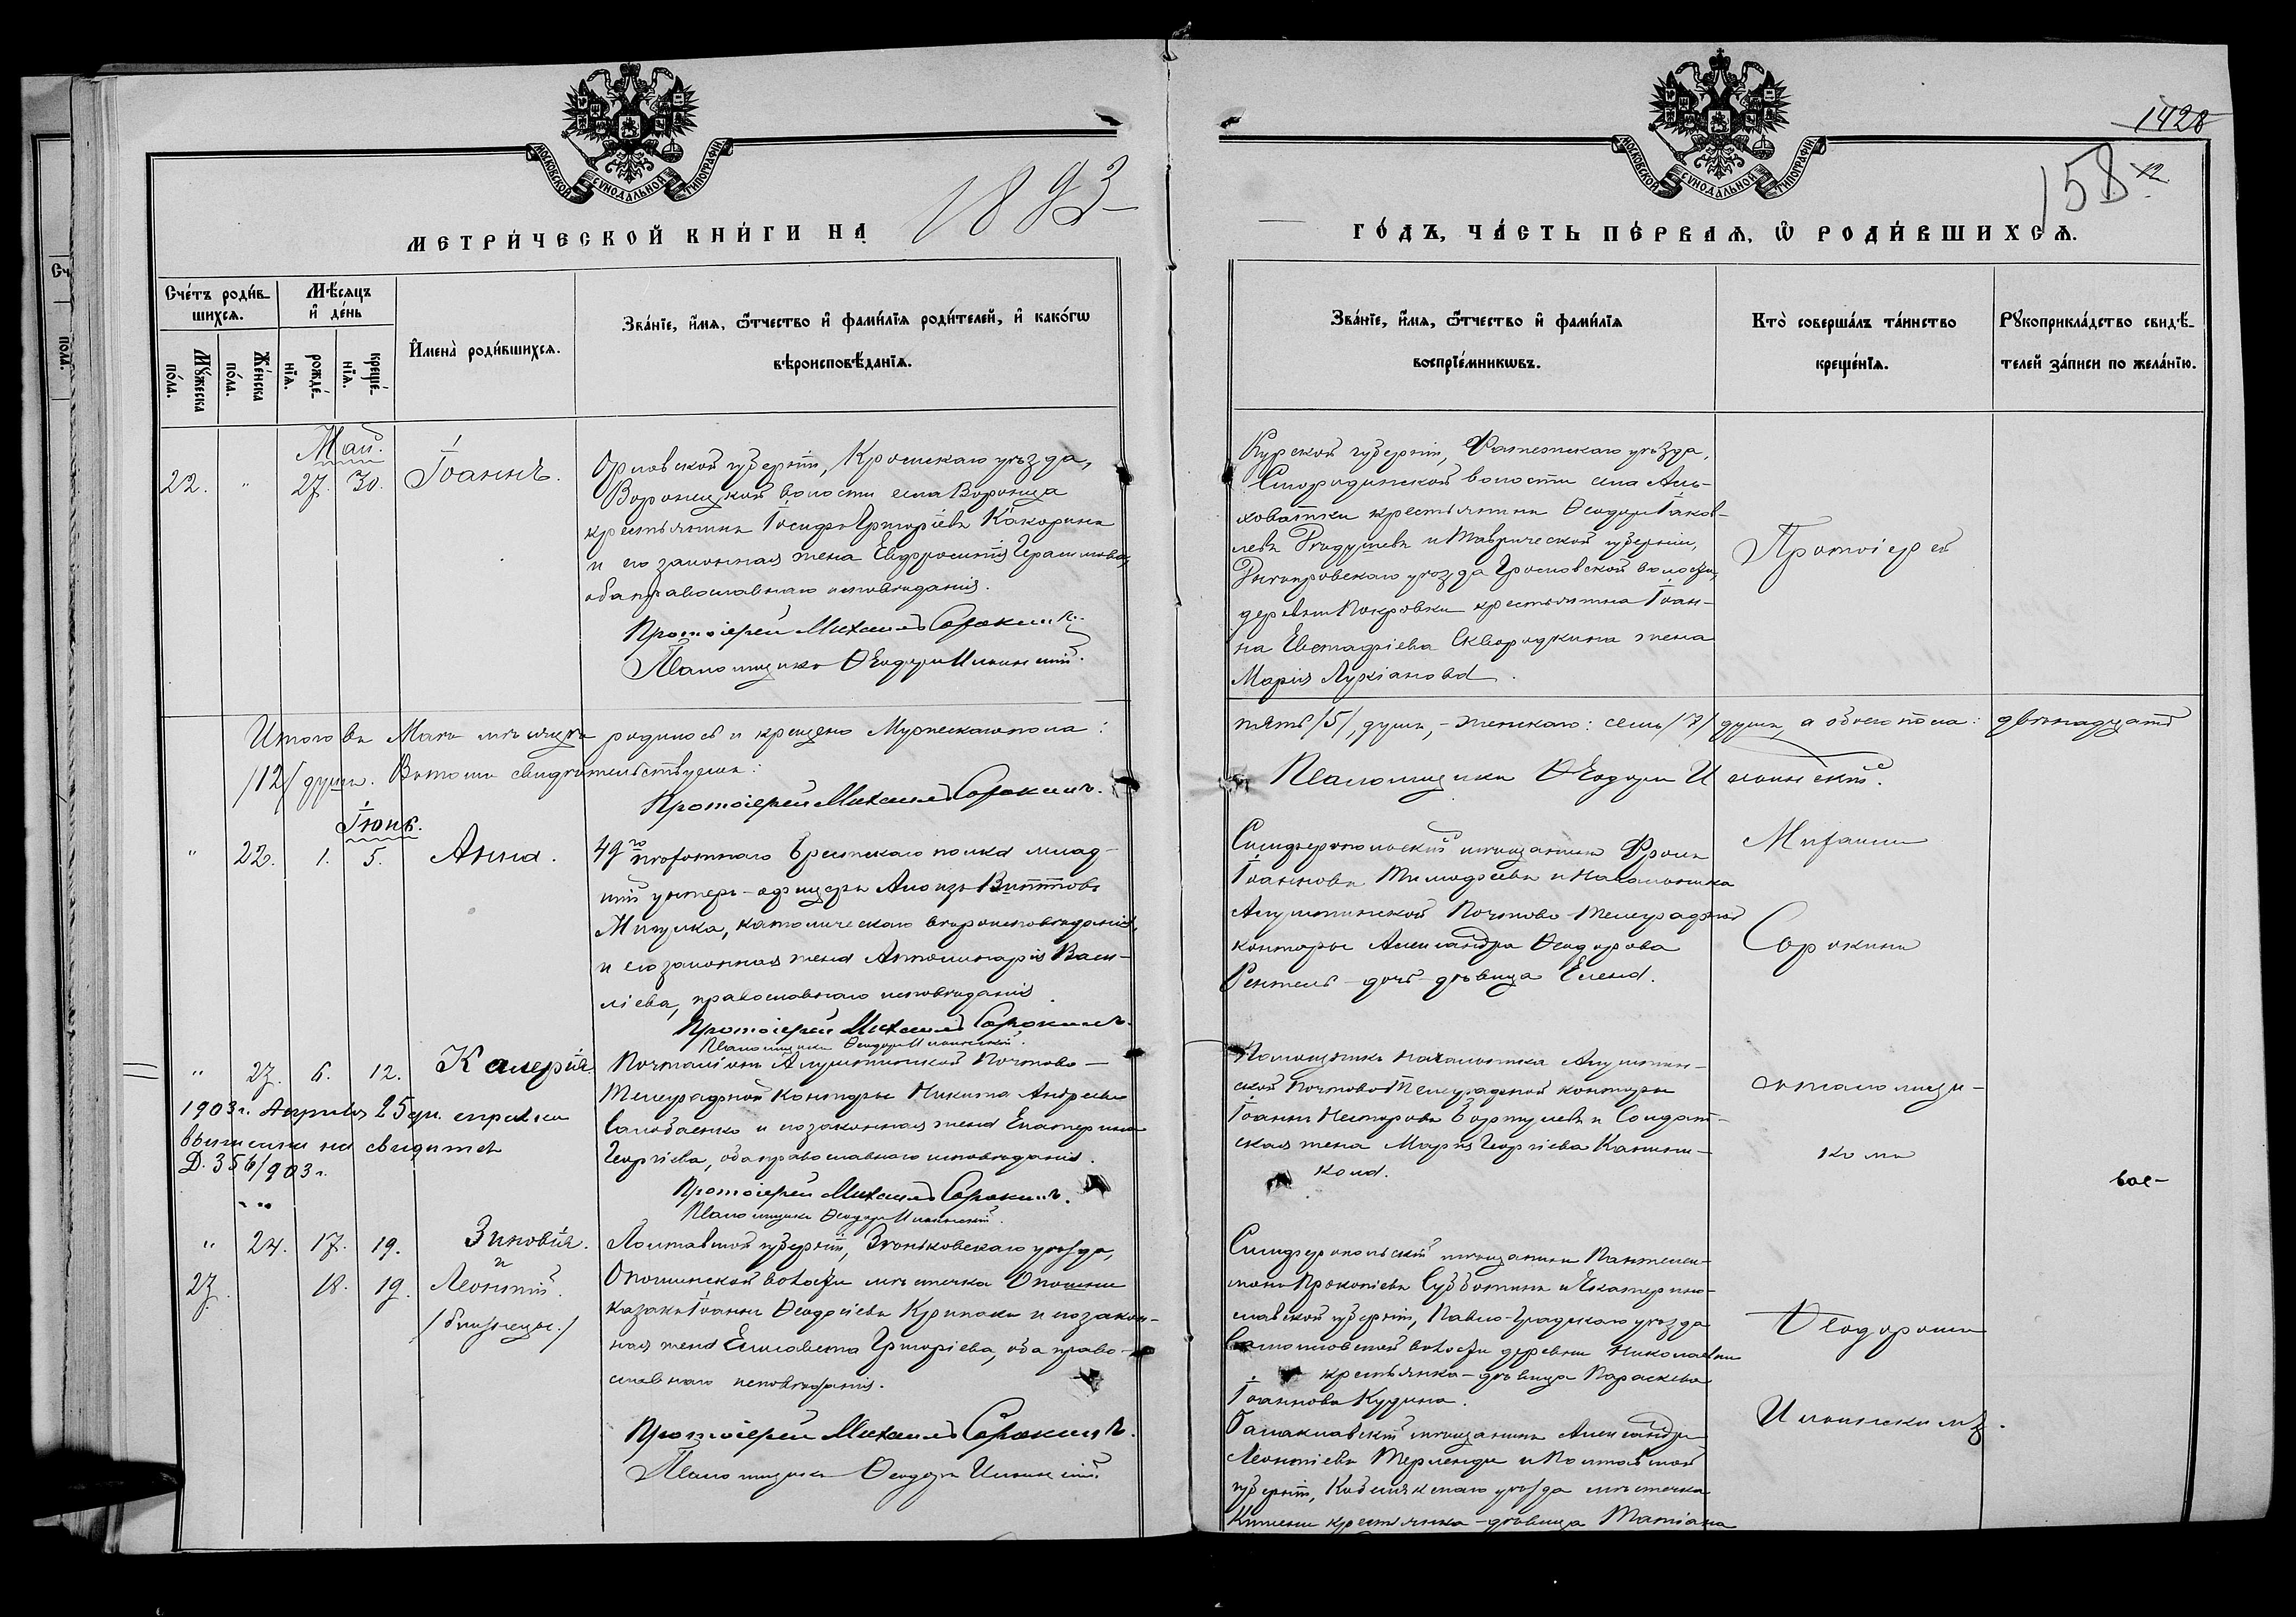 1428
158
12
МОСКОВСКОЙ СѴНОДАЛЬНОЙ ТИПОГРАФІИ
МОСКОВСКОЙ СѴНОДАЛЬНОЙ ТИПОГРАФІИ
МЕТРИ́ЧЕСКОЙ КНИ́ГИ НА 1893
ГО́ДЪ, ЧА́СТЬ ПЕ́РВАЯ, Ѡ РОДИ́ВШИХСЯ.
Сче́тъ роди́в-
шихся.
Мѣ́сяцъ
и҆ де́нь
Мꙋ́жеска
по́ла.
Же́нска
по́ла.
рожде́-
нїя.
креще́-
нїя.
И҆мена̀ роди́вшихся.
Зва́нїе, и҆́мя, ѻ҆́тчество и҆ фами́лїя роди́телей, и҆ како́гѡ
вѣроисповѣ́данїя.
Зва́нїе, и҆́мя, ѻ҆́тчество и҆ фами́лїя
воспрїе́мникѡвъ.
Кто̀ соверша́лъ та́инство
креще́нїя.
Рꙋкоприкла́дство свидѣ́-
телей за́писи по жела́нїю.
Май.
22. " 27. 30. Іоаннъ.
Орловской губерніи, Кромскаго уѣзда,
Воронецкой волости села Воронца
крестьянинъ Іосифъ Григоріевъ Какоринъ
и его законная жена Евфросинія Герасимова,
оба православнаго исповѣданія.
Протоіерей Михаилъ Сорокинъ.
Псаломщикъ Ѳеодоръ Ильинскій.
Курской губерніи, Фатежскаго уѣзда,
Смородинской волости села Аль-
ховатки крестьянинъ Ѳеодоръ Іаков-
левъ и Таврической губерніи,
Днѣпровскаго уѣзда волости,
деревни Покровки крестьянина Іоан-
на Евстафіева Сквородкина жена
Марія Лукіанова.
Протоіерей
Итого въ Маѣ мѣсяцѣ родилось и крещено Мужескаго пола:
пять /5/, душъ, - женскаго: семь /7/ душъ, а обоего пола: двѣнадцать
/12/ душъ. Въ томъ свидѣтельствуемъ:
Протоіерей Михаилъ Сорокинъ.
Псаломщикъ Ѳеодоръ Ильинскій.
Іюнь.
" 22. 1. 5. Анна.
49го пѣхотнаго Брестскаго полка млад-
шій унтеръ-офицеръ Алоизъ
католическаго вѣроисповѣданія,
и его законная жена Апполинарія Васи-
ліева, православнаго исповѣданія.
Протоіерей Михаилъ Сорокинъ.
Псаломщикъ Ѳеодоръ Ильинскій.
Симферопольскій мѣщанинъ Фролъ
Іоанновъ Тимофѣевъ и Начальника
Алуштинской Почтово-Телеграфной
конторы Александра Ѳеодорова
дочь дѣвица Елена.
Михаилъ
Сорокинъ
" 23. 6. 12. Калерія.
1903 г. Апрѣля 25 дн. справка
Д. 356/903 г.
Почталіонъ Алуштинской Почтово-
Телеграфной Конторы Никита Андреевъ
и его законная жена Екатерина
Георгіева, оба православнаго исповѣданія.
Протоіерей Михаилъ Сорокинъ.
Псаломщикъ Ѳеодоръ Ильинскій.
Помощникъ начальника Алуштин-
ской Почтово-Телеграфной конторы
Іоаннъ Несторовъ и Солдат-
ская жена Марія Георгіева
съ псаломщи-
комъ
вос-
" 24. 17. 19. Зиновія.
и
23. 18. 19. Леонтій.
/близнецы./
Полтавской губерніи, Зѣньковскаго уѣзда,
Опошнянской волости мѣстечка Опошни
казакъ Іоаннъ и его закон-
ная жена Елисавета Григоріева, оба право-
славнаго исповѣданія.
Протоіерей Михаилъ Сорокинъ.
Псаломщикъ Ѳеодоръ Ильинскій.
Симферопольскій мѣщанинъ Пантелеи-
монъ Прокопіевъ Субботинъ и Екатерино-
славской губерніи, Павло-градскаго уѣзда
волости деревни Николаевки
крестьянка-дѣвица Параскева
Іоаннова Кудина.
Балаклавскій мѣщанинъ Александръ
Леонтіевъ и Полтавской
губерніи, Кобелякскаго уѣзда мѣстечка
крестьянка-дѣвица Татіана
Ѳеодоромъ
Ильинскимъ.